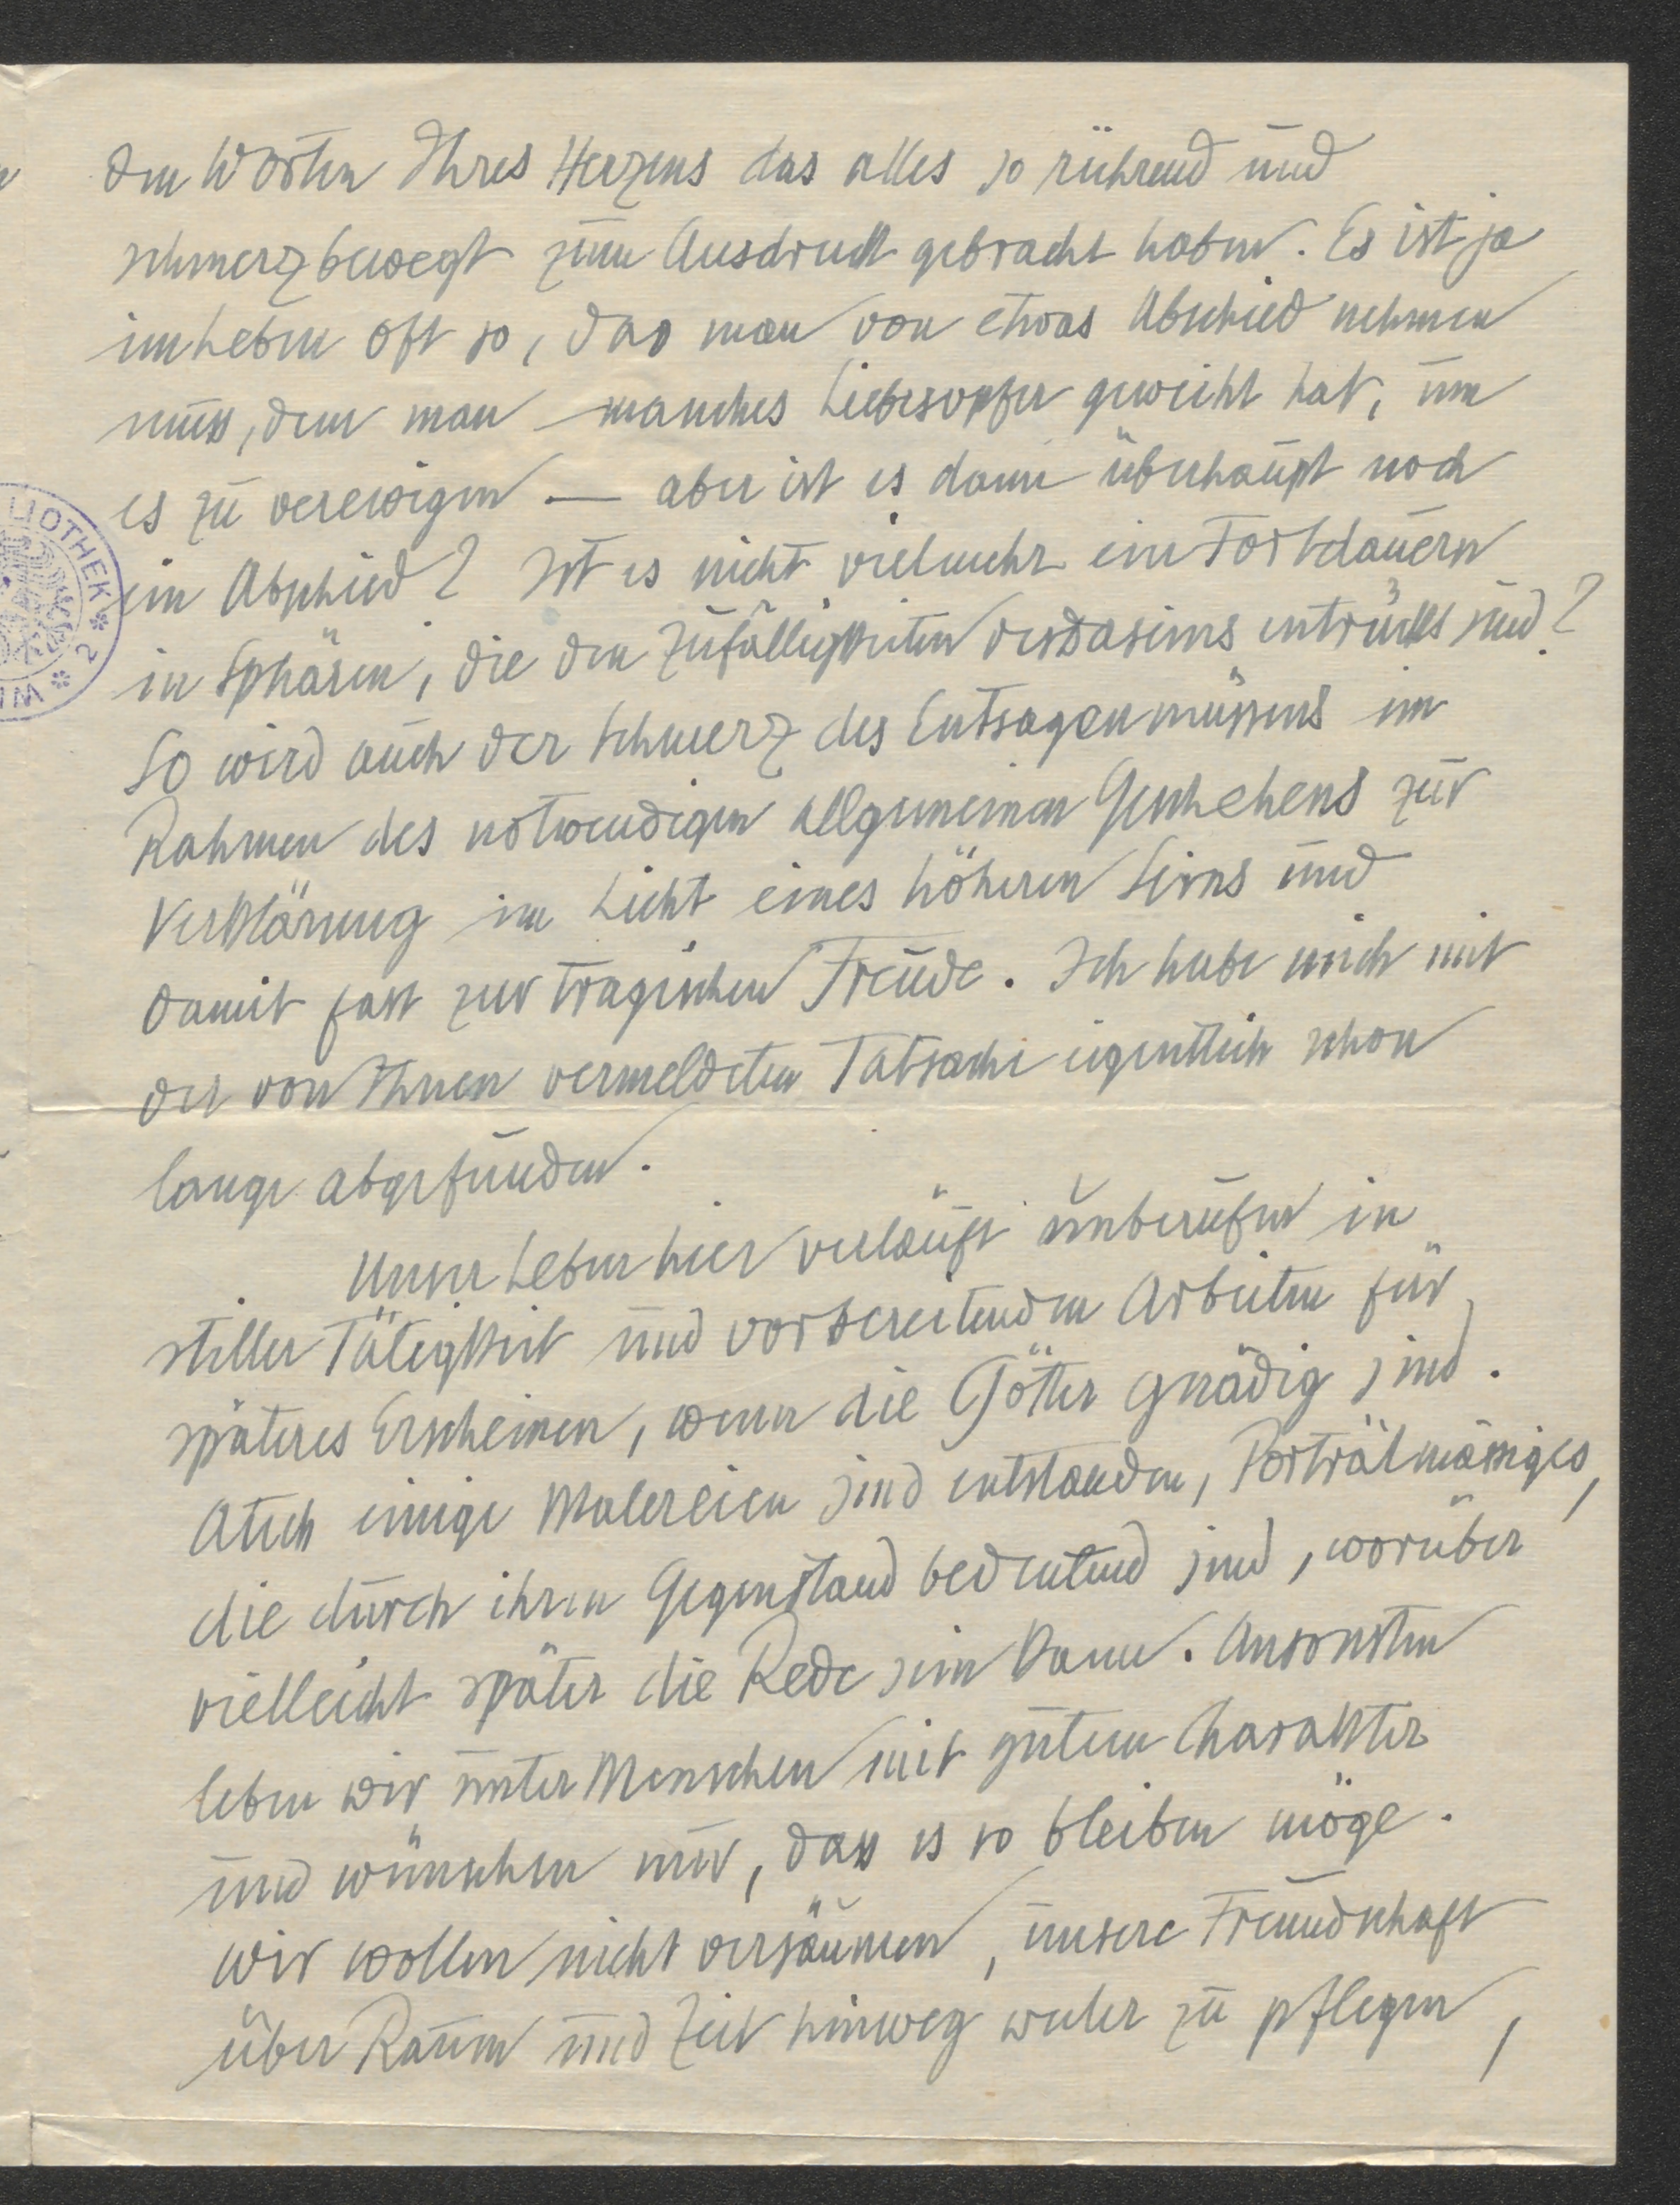 den Worten Ihres Herzens das alles so rührend und
schmerzbewegt zum Ausdruck gebracht haben. Es ist ja
im Leben oft so, das man von etwas Abschied nehmen
muss, dem man manches Liebesopfer geweiht hat, um
es zu verewigen — aber ist es dann überhaupt noch
ein Abschied? Ist es nicht vielmehr ein Fortdauern
in Sphären, die den Zufälligkeiten des Daseins entrückt sind?
So wird auch der Schmerz des Entsagenmüssens im
Rahmen des notwendigen allgemeinen Geschehens zur
Verklärung im Licht eines höheren Sinns und
damit fast zur tragischen Freude. Ich habe mich mit
der von Ihnen vermeldeten Tatsache eigentlich schon
lange abgefunden.
Unser Leben hier verläuft unberufen in
stiller Tätigkeit und vorbereitenden Arbeiten für
späteres Erscheinen, wenn die Götter gnädig sind.
Auch einige Malereien sind entstanden, Porträtmässiges,
die durch ihren Gegenstand bedeutend sind, worüber
vielleicht später die Rede sein kann. Ansonsten
leben wir unter Menschen mit gutem Charakter
und wünschen nur, dass es so bleiben möge.
Wir wollen nicht versäumen, unsere Freundschaft
über Raum und Zeit hinweg weiter zu pflegen,
LIOTHEK * 2 * WI